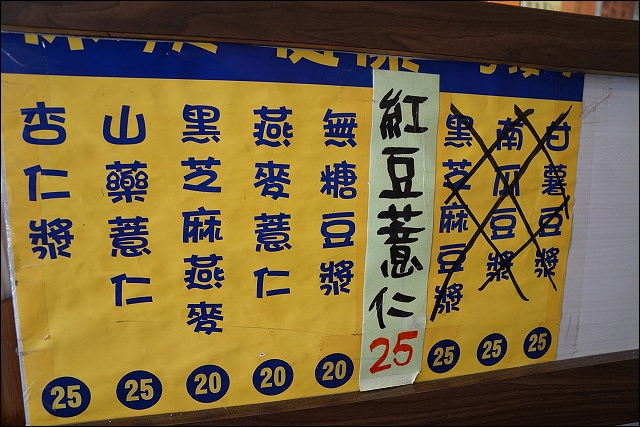 甘薯豆漿 25
南瓜豆漿 25
黑芝麻豆漿 25
紅豆薏仁 25
無糖豆漿 20
燕麥薏仁 20
黑芝麻燕麥 20
山藥薏仁 25
杏仁漿 25